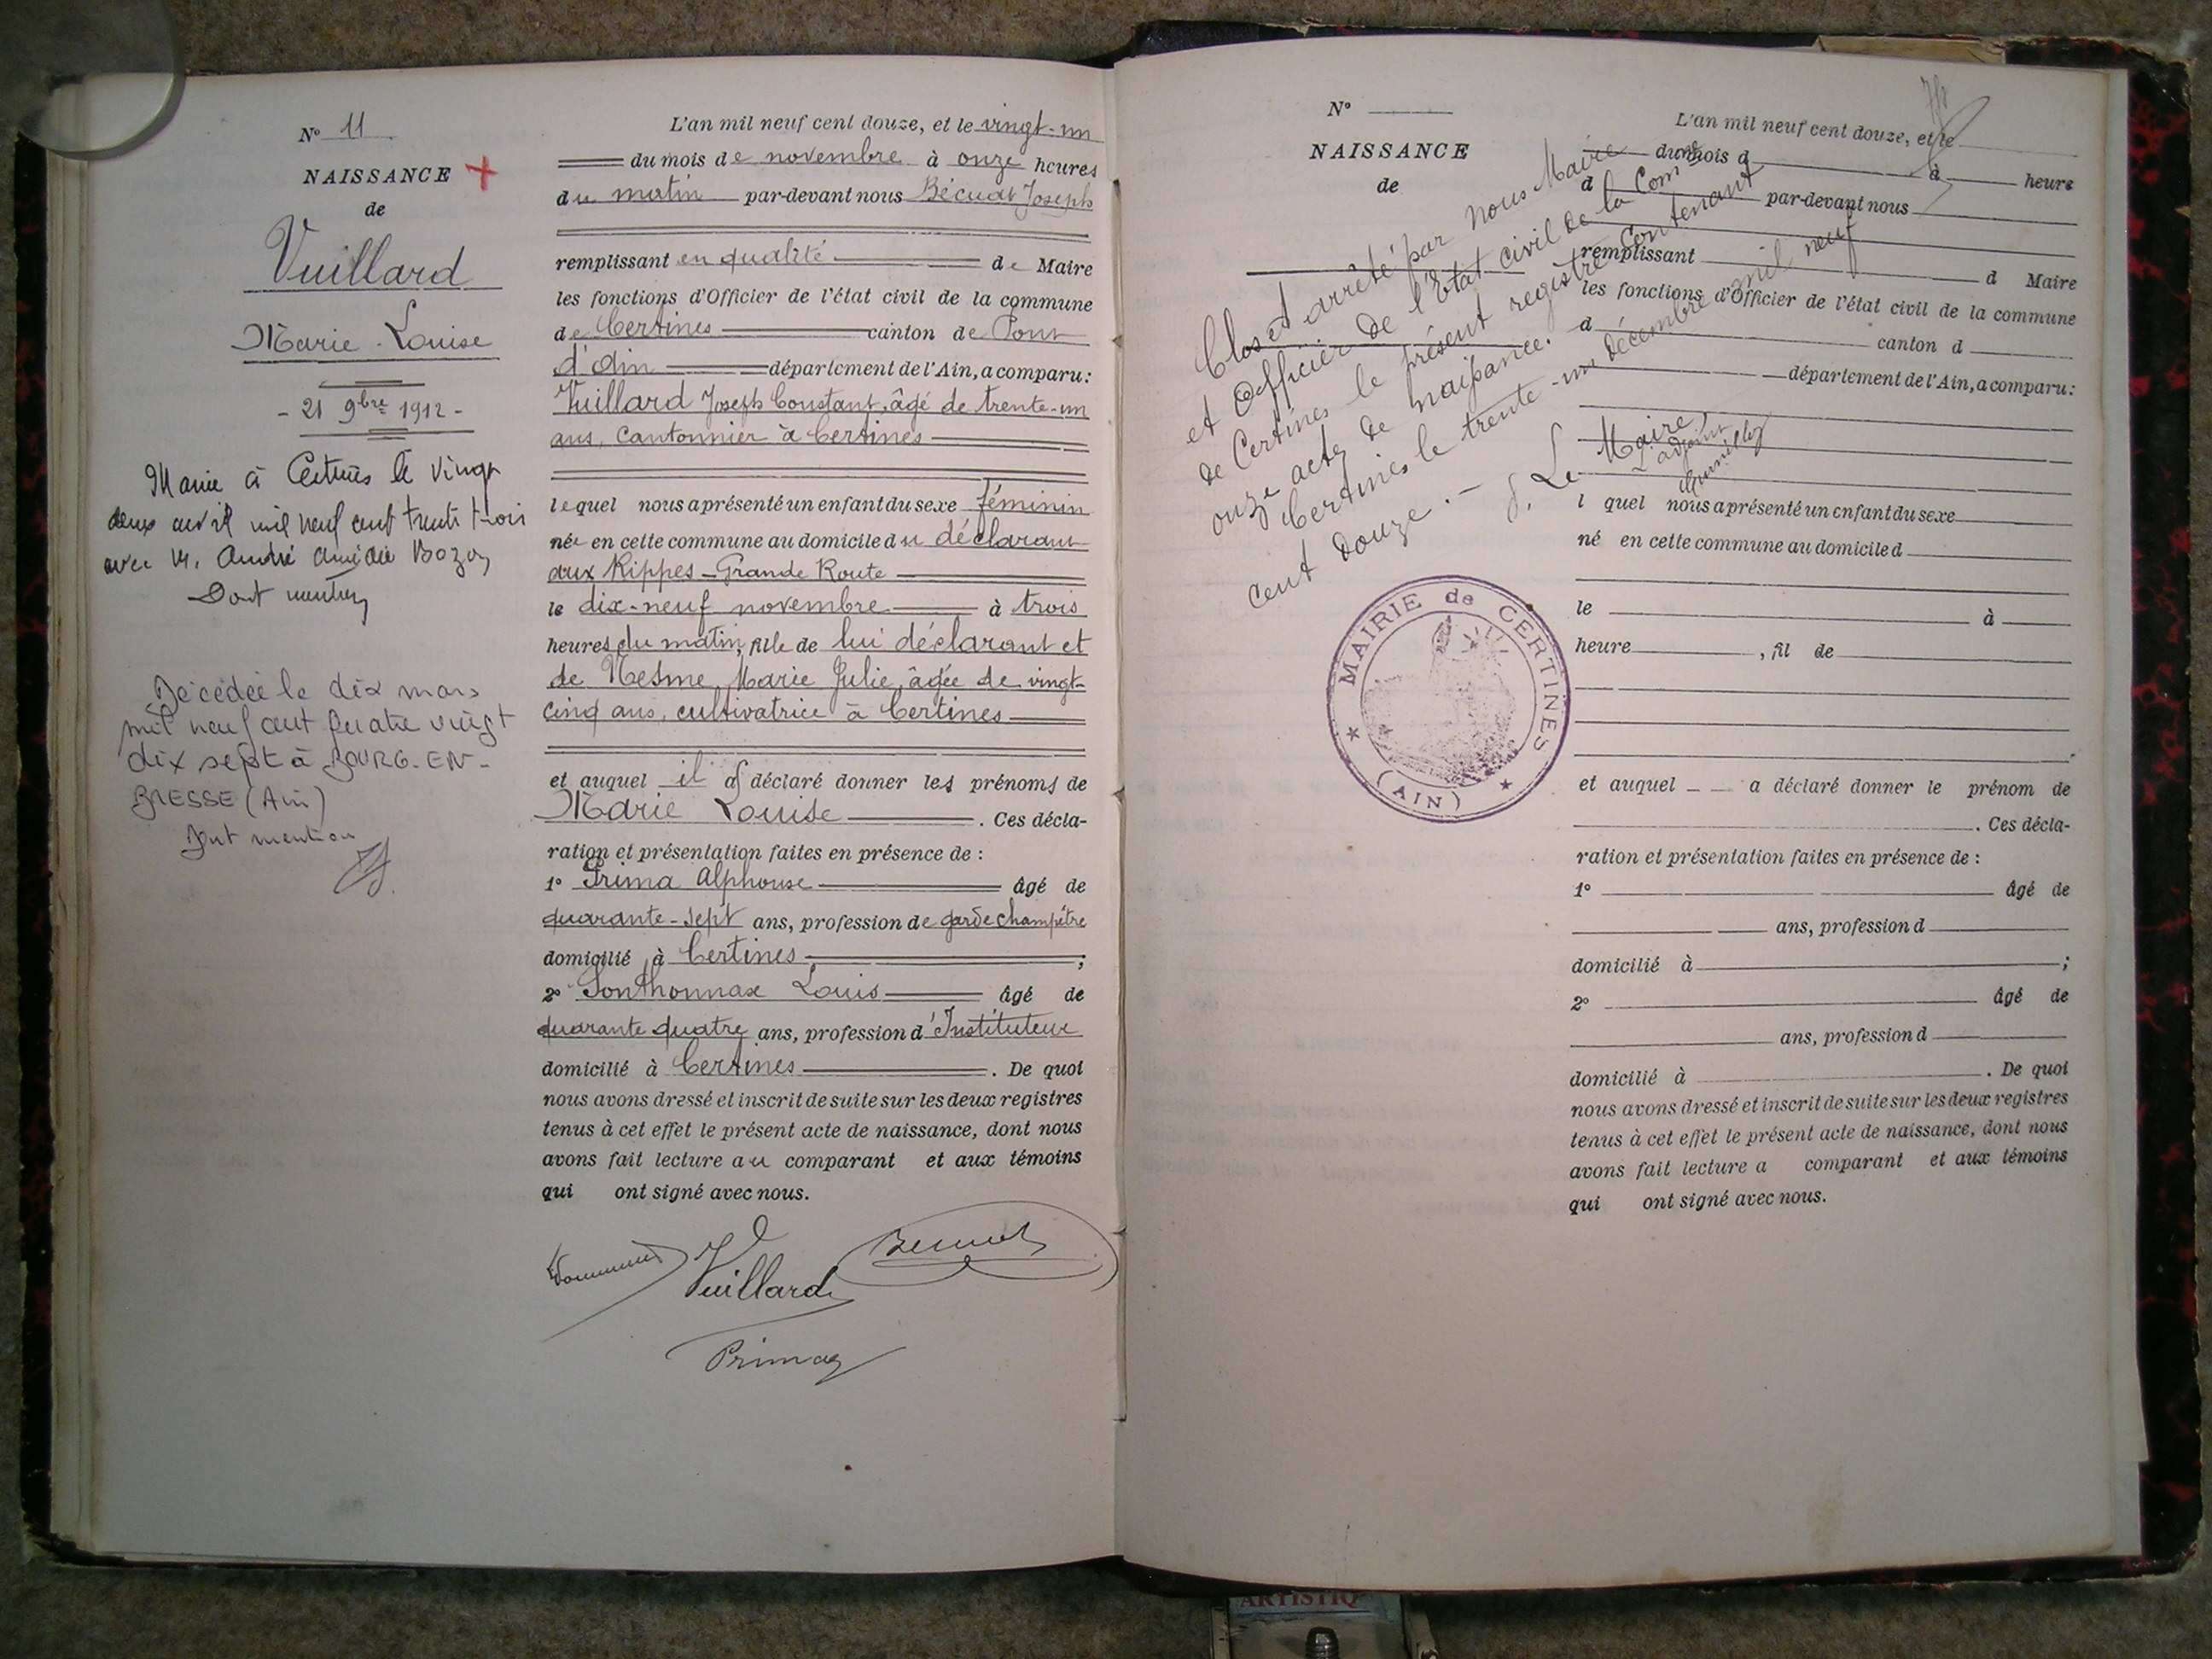 N° 11
NAISSANCE
de
Vuillard
Marie-Louise
- 21 9bre 1912 -
Mariée à Certines le vingt
deux avril mil neuf cent trente trois
avec M. André Amédée Bozon
Dont mention
Décédée le dix mars
mil neuf cent quatre vingt
dix sept à BOURG-EN-
BRESSE (Ain)
Dont mention
L'an mil neuf cent douze, et le vingt-un
du mois de novembre à onze heures
du matin par-devant nous Bécuat Joseph
remplissant en qualité de Maire
les fonctions d'Officier de l'état civil de la commune
de Certines canton de Pont
d'Ain département de l'Ain, a comparu :
Vuillard Joseph Constant, âgé de trente-un
ans, cantonnier à Certines
lequel nous a présenté un enfant du sexe féminin
née en cette commune au domicile du déclarant
aux Rippes - Grande Route
le dix-neuf novembre à trois
heures du matin, fille de lui déclarant et
de Mesme Marie Julie, âgée de vingt-
cinq ans, cultivatrice à Certines
et auquel il a déclaré donner les prénoms de
Marie Louise . Ces décla-
ration et présentation faites en présence de :
1° Prima Alphonse âgé de
quarante-sept ans, profession de garde champêtre
domicilié à Certines ;
2° Sonthonnax Louis âgé de
quarante quatre ans, profession d'Instituteur
domicilié à Certines . De quoi
nous avons dressé et inscrit de suite sur les deux registres
tenus à cet effet le présent acte de naissance, dont nous
avons fait lecture au comparant et aux témoins
qui ont signé avec nous.
Vuillard
Prima
N°
NAISSANCE
de
Clos et arrêté par nous Maire
et Officier de l'Etat civil de la Comne
de Certines le présent registre contenant
onze actes de naissance.
Certines le trente-un décembre mil neuf
cent douze. -
Le Maire,
L'adjoint
MAIRIE de CERTINES
(AIN)
L'an mil neuf cent douze, et le
du mois d à heure
d par-devant nous
remplissant d Maire
les fonctions d'Officier de l'état civil de la commune
d canton d
département de l'Ain, a comparu :
l quel nous a présenté un enfant du sexe
né en cette commune au domicile d
le à
heure , fil de
et auquel a déclaré donner le prénom de
. Ces décla-
ration et présentation faites en présence de :
1° âgé de
ans, profession d
domicilié à ;
2° âgé de
ans, profession d
domicilié à . De quoi
nous avons dressé et inscrit de suite sur les deux registres
tenus à cet effet le présent acte de naissance, dont nous
avons fait lecture a comparant et aux témoins
qui ont signé avec nous.
ARTISTIQ